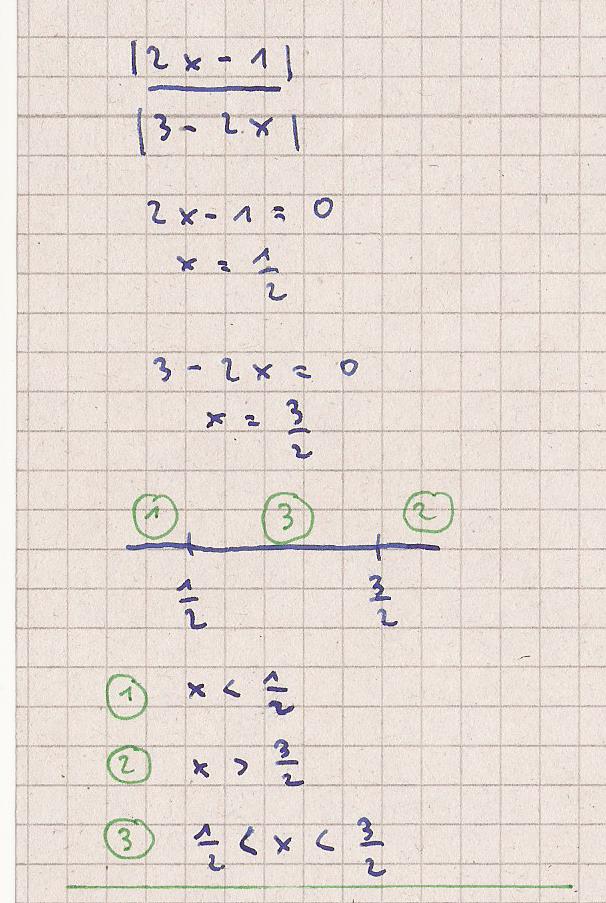 |2x - 1|
|3 - 2x|
2x - 1 = 0
x = 1/2
3 - 2x = 0
x = 3/2
1 3 2
1/2 3/2
1 x < 1/2
2 x > 3/2
3 1/2 < x < 3/2